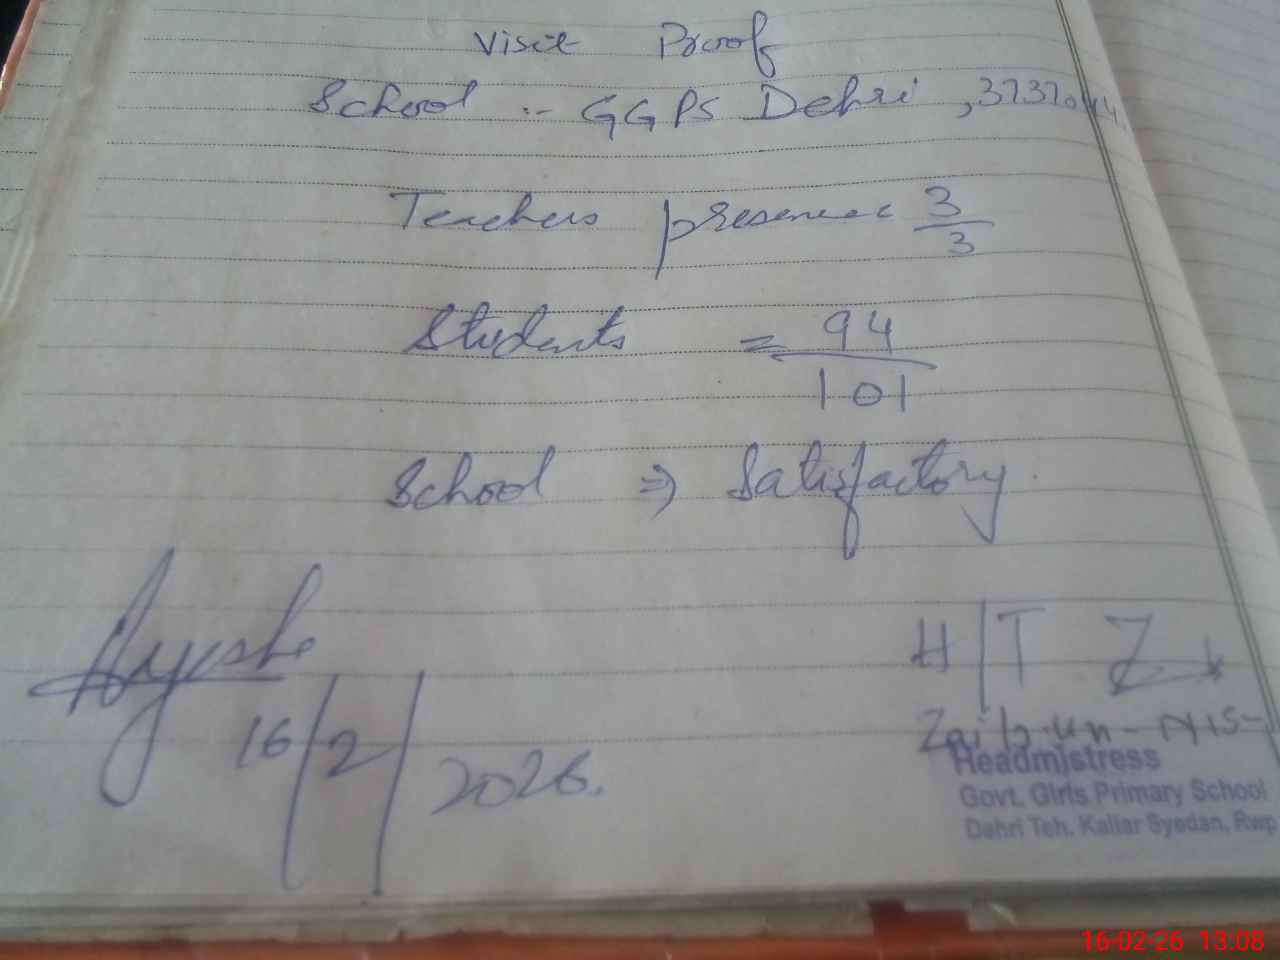 Visit Proof
School :- GGPS Dehri , 37370
Teachers presence 3/3
Students = 94/101
School ⇒ Satisfactory.
Ayesha
16/2/2026.
H/T
Zaib-un-NIS
Headmistress
Govt. Girls Primary School
Dehri Teh. Kallar Syedan, Rwp
16-02-26 13:08